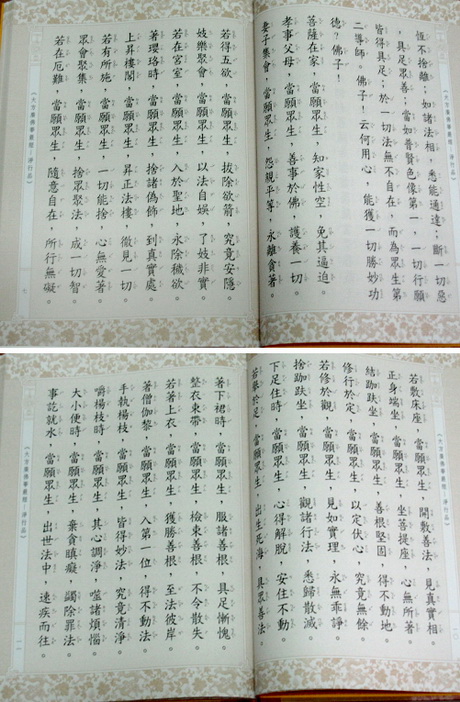 恆不捨離；如諸法相，悉能通達；斷一切惡
，具足眾善；當如普賢色像第一，一切行願
皆得具足；於一切法無不自在，而為眾生第
二導師。佛子！云何用心，能獲一切勝妙功
德？佛子！
菩薩在家，當願眾生，知家性空，免其逼迫。
孝事父母，當願眾生，善事於佛，護養一切。
妻子集會，當願眾生，怨親平等，永離貪著。
若得五欲，當願眾生，拔除欲箭，究竟安隱。
妓樂聚會，當願眾生，以法自娛，了妓非實。
若在宮室，當願眾生，入於聖地，永除穢欲。
著瓔珞時，當願眾生，捨諸偽飾，到真實處。
上昇樓閣，當願眾生，昇正法樓，徹見一切。
若有所施，當願眾生，一切能捨，心無愛著。
眾會聚集，當願眾生，捨眾聚法，成一切智。
若在厄難，當願眾生，隨意自在，所行無礙。
《大方廣佛華嚴經－淨行品》
七
若敷床座，當願眾生，開敷善法，見真實相。
正身端坐，當願眾生，坐菩提座，心無所著。
結跏趺坐，當願眾生，善根堅固，得不動地。
修行於定，當願眾生，以定伏心，究竟無餘。
若修於觀，當願眾生，見如實理，永無乖諍。
捨跏趺坐，當願眾生，觀諸行法，悉歸散滅。
下足住時，當願眾生，心得解脫，安住不動。
若舉於足，當願眾生，出生死海，具眾善法。
著下裙時，當願眾生，服諸善根，具足慚愧。
整衣束帶，當願眾生，檢束善根，不令散失。
若著上衣，當願眾生，獲勝善根，至法彼岸。
著僧伽黎，當願眾生，入第一位，得不動法。
手執楊枝，當願眾生，皆得妙法，究竟清淨。
嚼楊枝時，當願眾生，其心調淨，噬諸煩惱。
大小便時，當願眾生，棄貪瞋癡，蠲除罪法。
事訖就水，當願眾生，出世法中，速疾而往。
《大方廣佛華嚴經－淨行品》
一一